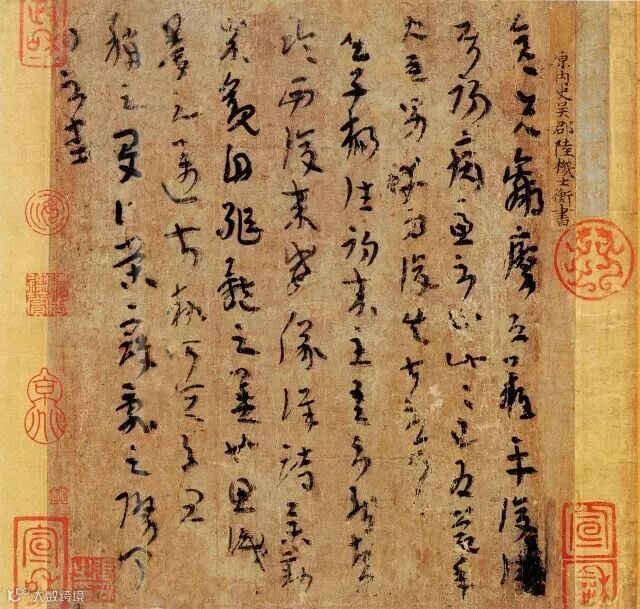 原內史吳郡陸機士衡書
彦先羸瘵恐難平復往屬
初病慮不止此此已為慶承
使唯男幸為復失前憂耳
吳子楊往初來主吾不能盡
臨西復來威儀詳跱舉動
成觀自軀體之美也思識
量之邁前執所恒有宜
稱之夏伯榮寇亂之際聞
問不悉
宣和
宣和
大数跨境